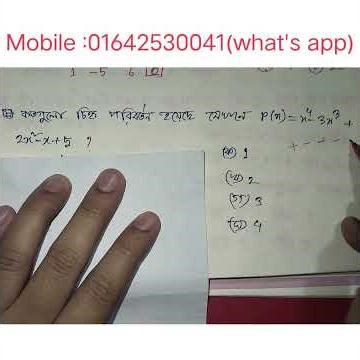 Mobile :01642530041(what's app)
1 -5 6 0
কতগুলো চিহ্ন পরিবর্তন হয়েছে যেখানে P(x)=x⁴-3x³+
2x²-x+5 ?
+ - - -
(ক) 1
(খ) 2
(গ) 3
(ঘ) 4